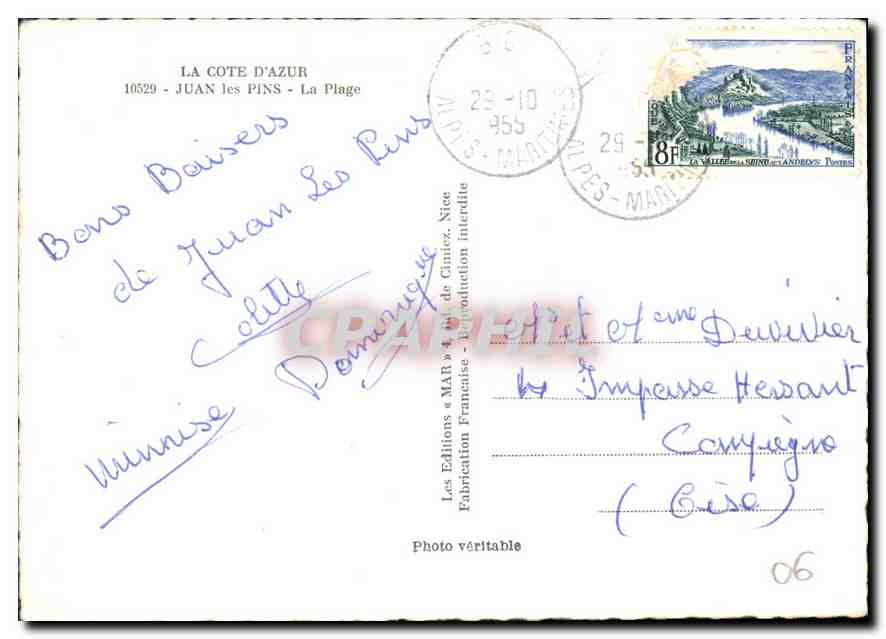 LA COTE D'AZUR
10529 - JUAN les PINS - La Plage
Bons Baisers
de Juan Les Pins
Colette
Dominique
316
29 -10
955
ALPES - MARITIMES
29 -
955
ALPES - MARI
FRANÇAISE
8F
LA VALLÉE DE LA SEINE AUX ANDELYS POSTES
Les Editions « MAR » 4, de Cimiez, Nice
Fabrication Française - Reproduction interdite
CPAPHIL
Mr et Mme Duvivier
Impasse Hersant
Compiègne
(Oise)
Photo véritable
06